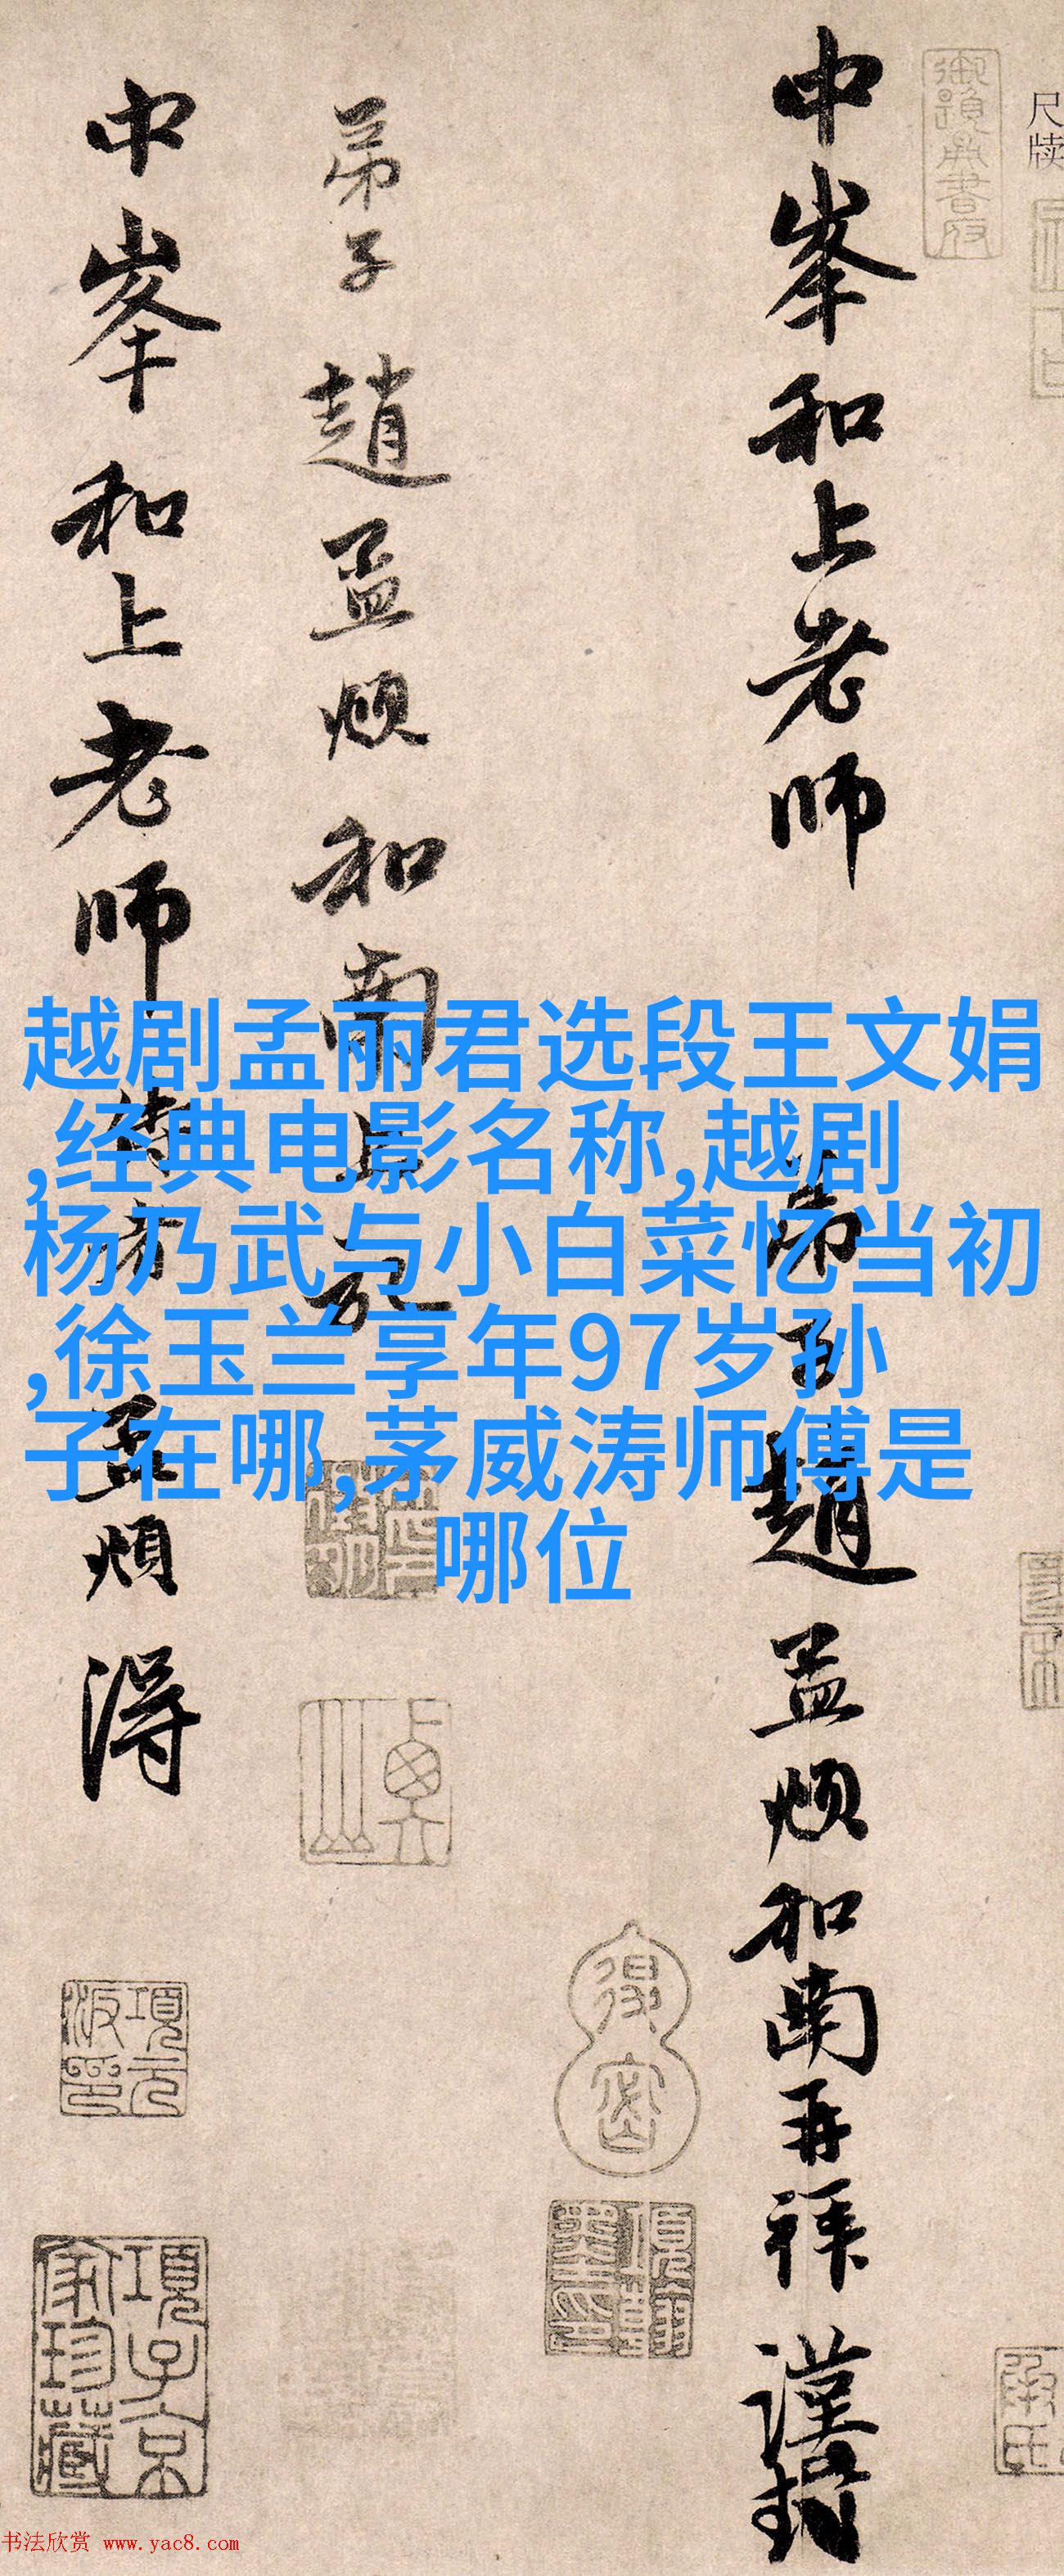 越剧孟丽君选段王文娟
,经典电影名称,越剧
杨乃武与小白菜忆当初
,徐玉兰享年97岁孙
子在哪,茅威涛师傅是
哪位
尺牍
中峯和上老师
弟子趙孟頫和南再拜謹封
弟子趙孟頫和南上記
中峯和上老师侍者 孟頫謹
項元汴印
項子京家珍藏
書法欣赏 www.yac8.com